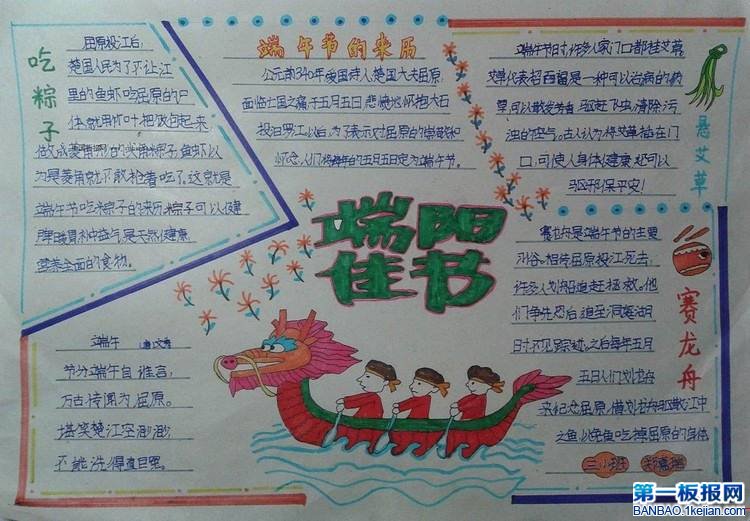 吃粽子
屈原投江后,
楚国人民为了不让江
里的鱼虾吃屈原的尸
体就用竹叶把饭包起来
做成菱角形的尖角粽子,鱼虾以
为是菱角就不敢抢着吃了。这就是
端午节吃粽子的来历 粽子可以健
脾暖胃补中益气,是天然健康
营养全面的食物。
端午节的来历
公元前340年,爱国诗人,楚国大夫屈原,
面临亡国之痛,于五月五日 悲愤地怀抱大石
投汨罗江,以后,为了表示对屈原的崇敬和
怀念,人们将每年的五月五日定为端午节。
端午节时,许多人家门口都挂艾草,
艾草代表招百福,是一种可以治病的
可以散发芳香 驱赶飞虫,清除污
浊的空气。古人认为将艾草插在门
口,可使人身体健康,还可以
驱邪保平安!
悬艾草
端阳
佳节
赛龙舟是端午节的主要
习俗,相传屈原投江死去,
许多人划船追赶拯救。他
们争先恐后,追至洞庭湖
时不见踪迹,之后每年五月
五日人们划龙舟
来纪念屈原,借划龙舟驱散江中
之鱼,以免鱼吃掉屈原的身体
赛龙舟
端午 唐文秀
节分端午自谁言,
万古传闻为屈原。
堪笑楚江空渺渺,
不能洗得直臣冤。
三小班
第一板报网
BANBAO.1kejian.com